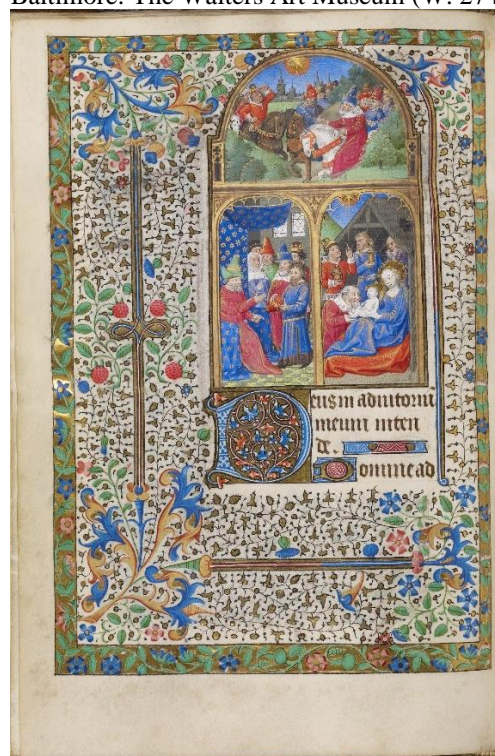 Baltimore. The Walters Art Museum (W.
Deus in adiutoriu
meum inten
de.
Domine ad